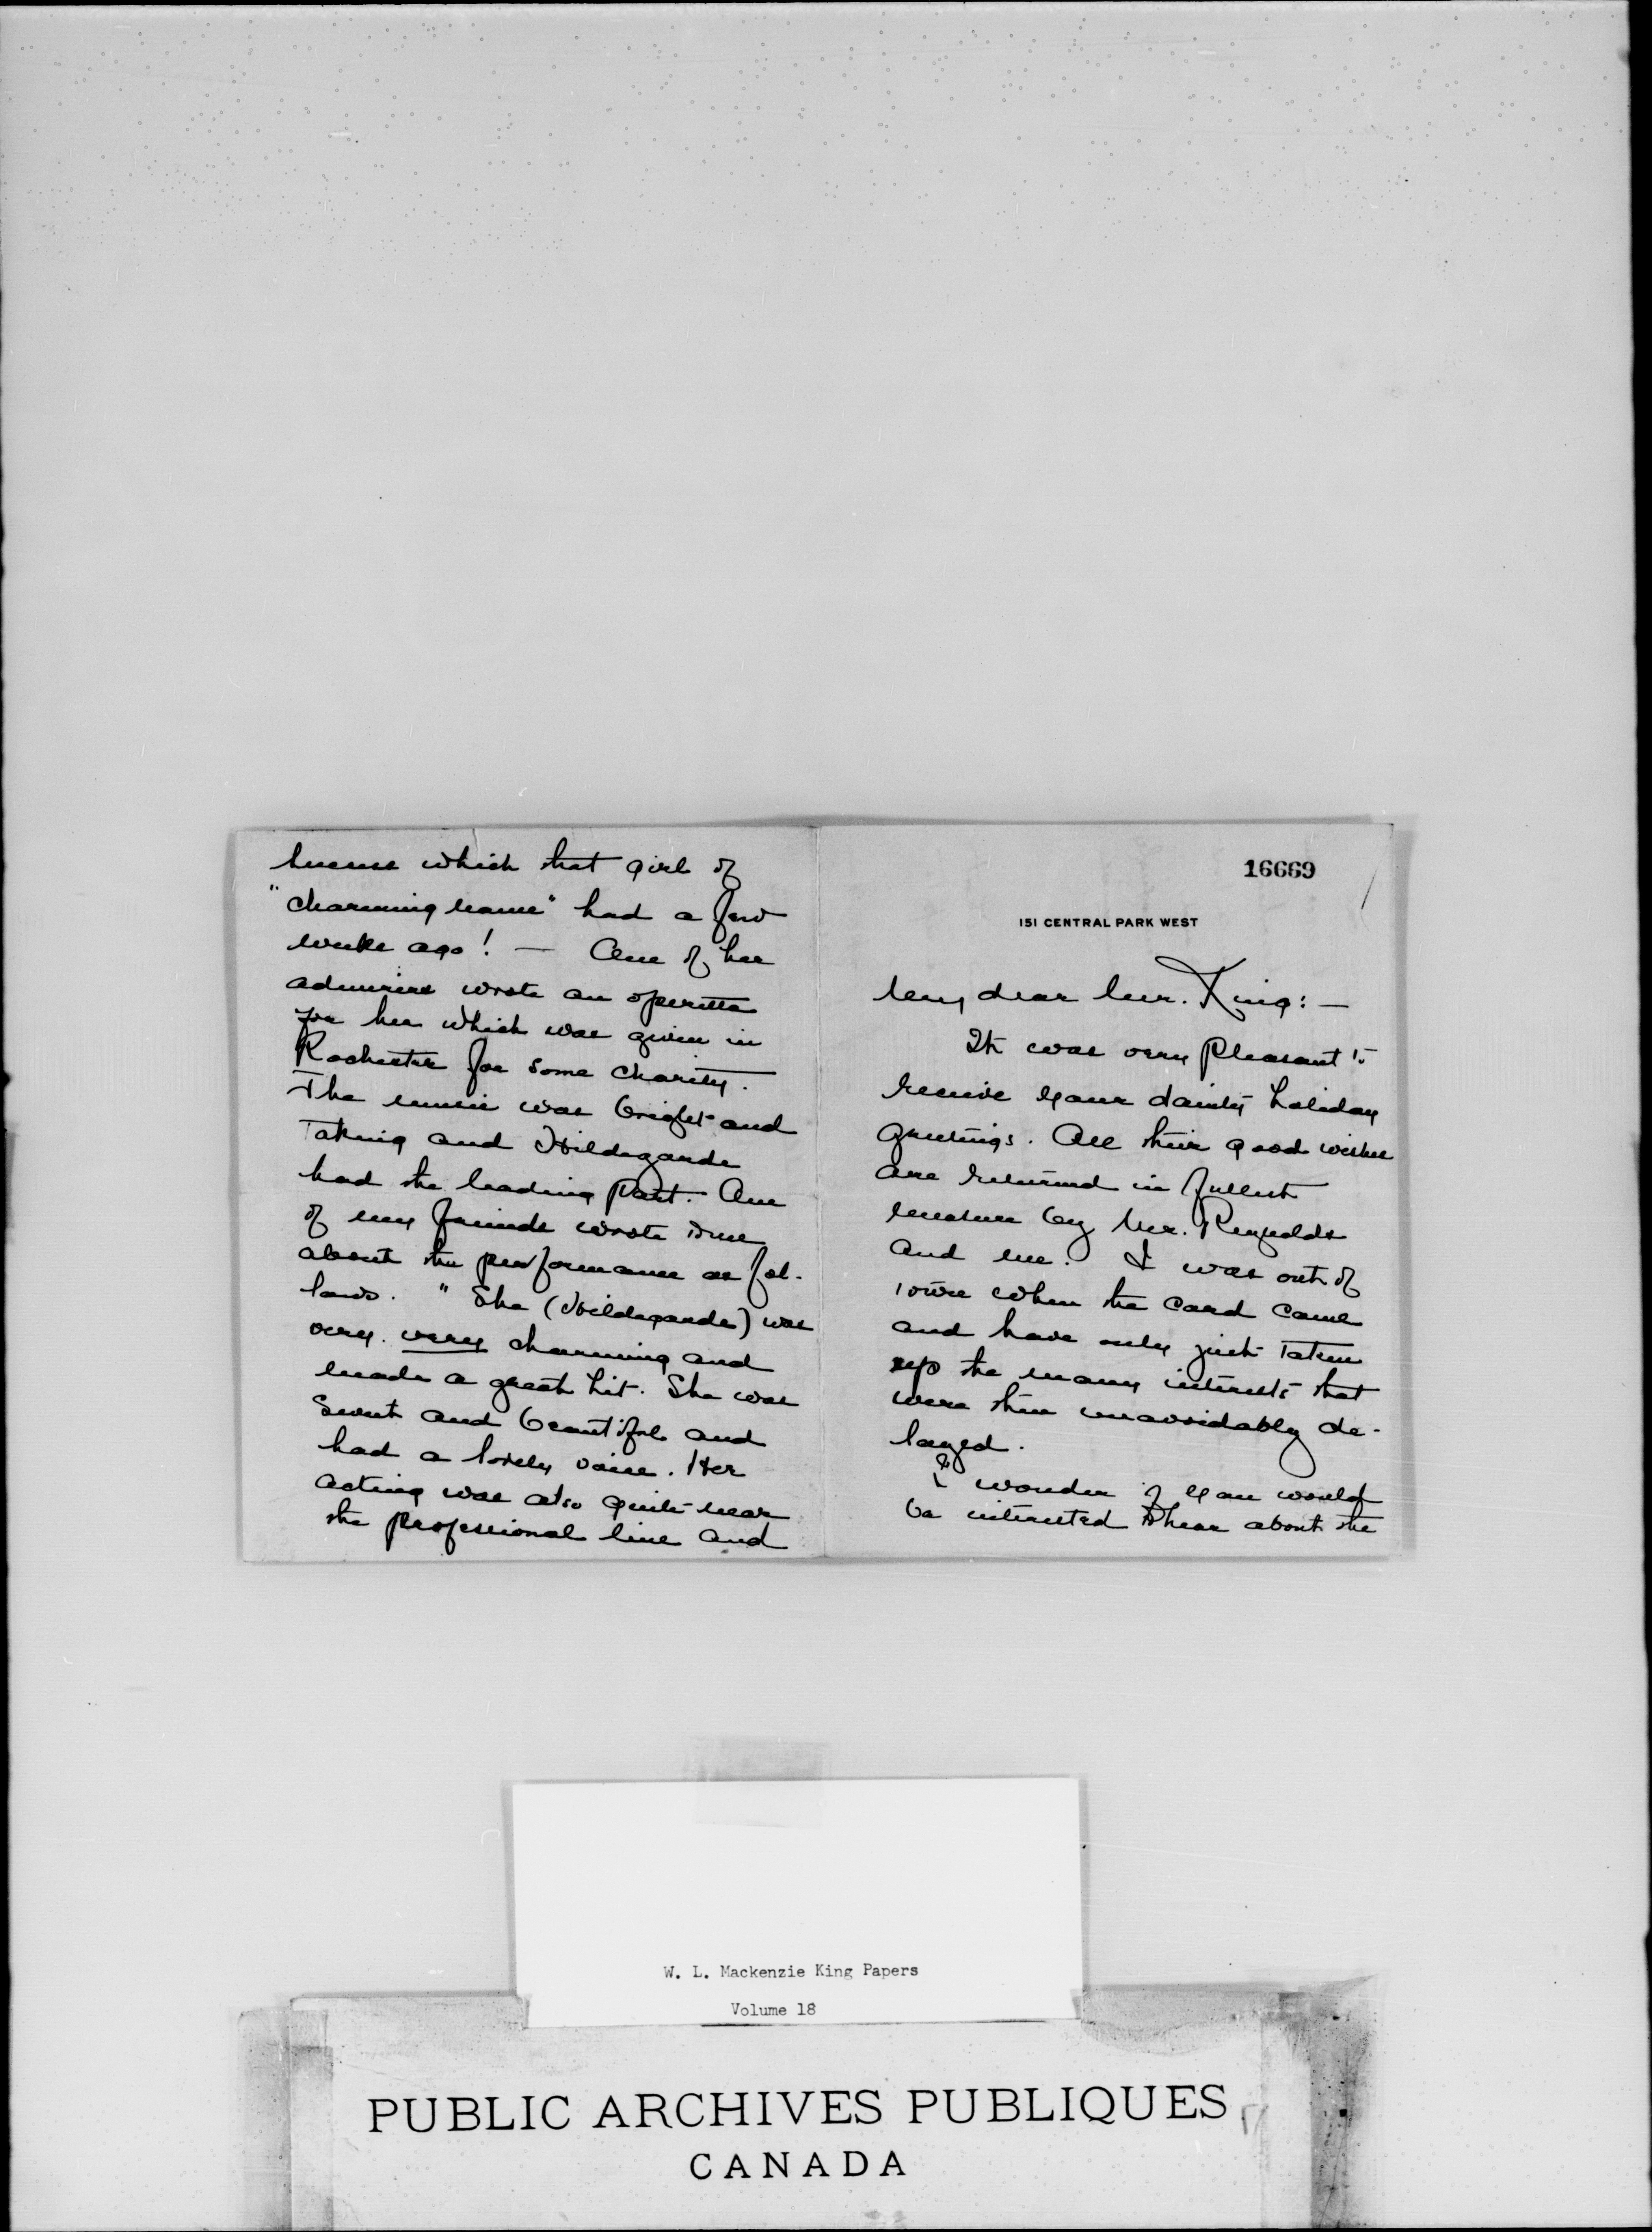 16669
151 CENTRAL PARK WEST
My dear Mr. King: —
It was very pleasant to
receive your dainty holiday
greetings. All their good wishes
are returned in fullest
measure by Mr. Reynolds
and me. I was out of
town when the card came
and have only just taken
up the many interests that
were then unavoidably de-
layed.
I wonder if you would
be interested to hear about the
which that girl of
"charming name" had a few
weeks ago! — One of her
admirers wrote an operetta
for her which was given in
Rochester for some charity.
The music was bright and
taking and Hildegarde
had the leading part. One
of my friends wrote me
about the performance as fol-
lows. "She (Hildegarde) was
very, very charming and
made a great hit. She was
sweet and beautiful and
had a lovely voice. Her
acting was also quite near
the professional line and
W. L. Mackenzie King Papers
Volume 18
PUBLIC ARCHIVES PUBLIQUES
CANADA